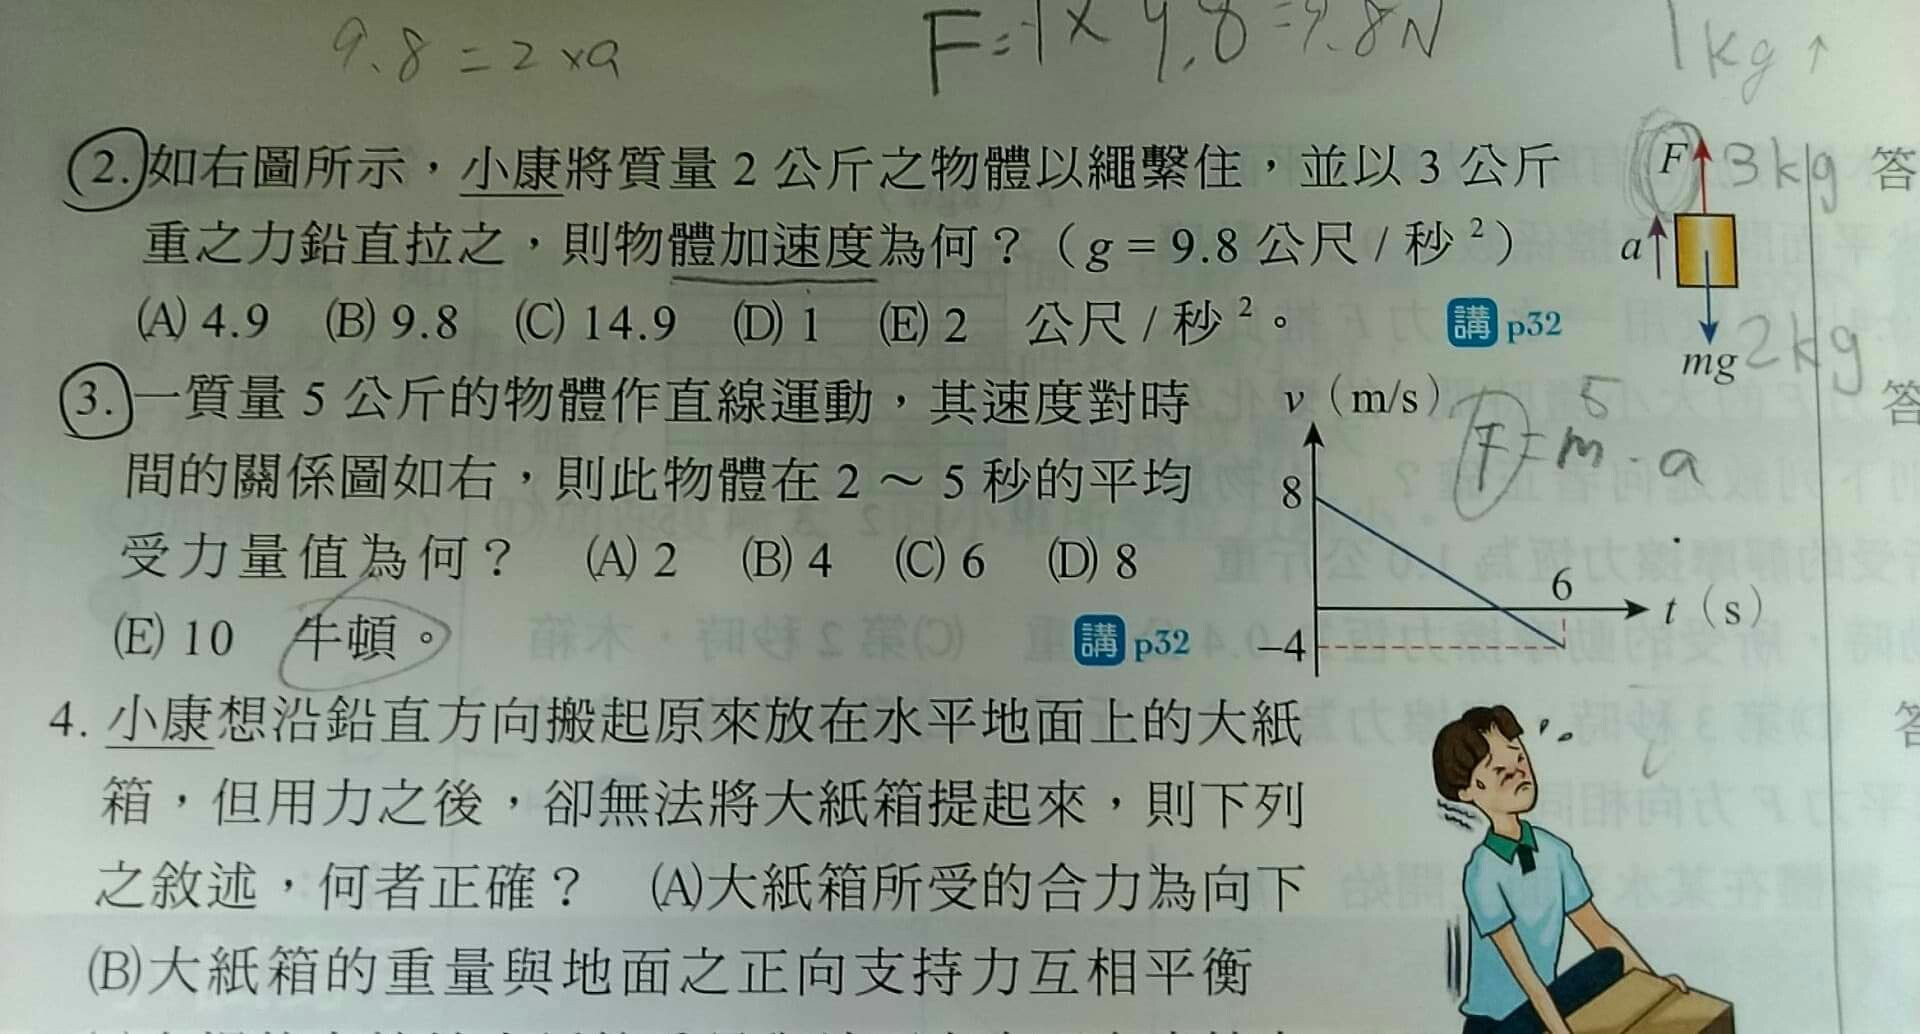 9.8=2×a
F=1×9.8=9.8N
1kg↑
2.如右圖所示，小康將質量 2 公斤之物體以繩繫住，並以 3 公斤
重之力鉛直拉之，則物體加速度為何？（g = 9.8 公尺 / 秒²）
(A) 4.9 (B) 9.8 (C) 14.9 (D) 1 (E) 2 公尺 / 秒²。
講 p32
F 3kg
a
mg 2kg
答
3.一質量 5 公斤的物體作直線運動，其速度對時
間的關係圖如右，則此物體在 2 ～ 5 秒的平均
受力量值為何？ (A) 2 (B) 4 (C) 6 (D) 8
(E) 10 牛頓。
講 p32
v（m/s）
8
6
t（s）
−4
5
F=m·a
答
4. 小康想沿鉛直方向搬起原來放在水平地面上的大紙
箱，但用力之後，卻無法將大紙箱提起來，則下列
之敘述，何者正確？ (A)大紙箱所受的合力為向下
(B)大紙箱的重量與地面之正向支持力互相平衡
答